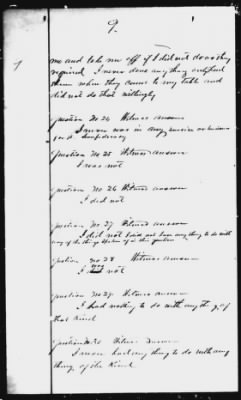 9.
me and take me off if I did not do as they
required I never done anything outside
them when they come to my table and
did not do that willingly
Question No 24 Witness answer
I never was in any service
Question No 25 Witness answer
I was not
Question No 26 Witness answer
I did not
Question No 27 Witness answer
I did not I did not have any thing to do with
any of the things spoken of in this question
Question No 28 Witness answer
I did not
Question No 29 Witness answer
I had nothing to do with any thing of
that kind
Question No 30 Witness answer
I never had any thing to do with any
thing of the kind